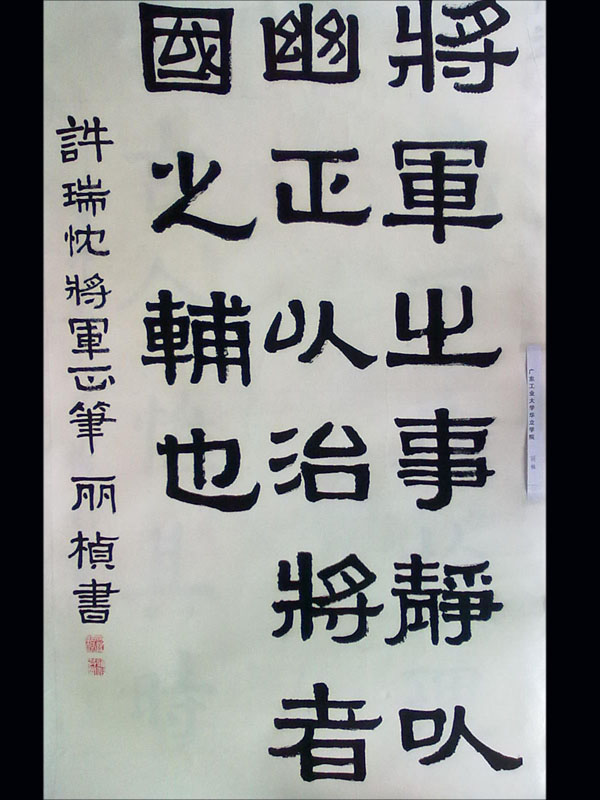 將軍之事靜以
幽正以治將者
國之輔也
許瑞忱將軍正筆 丽楨書
广东工业大学华立学院